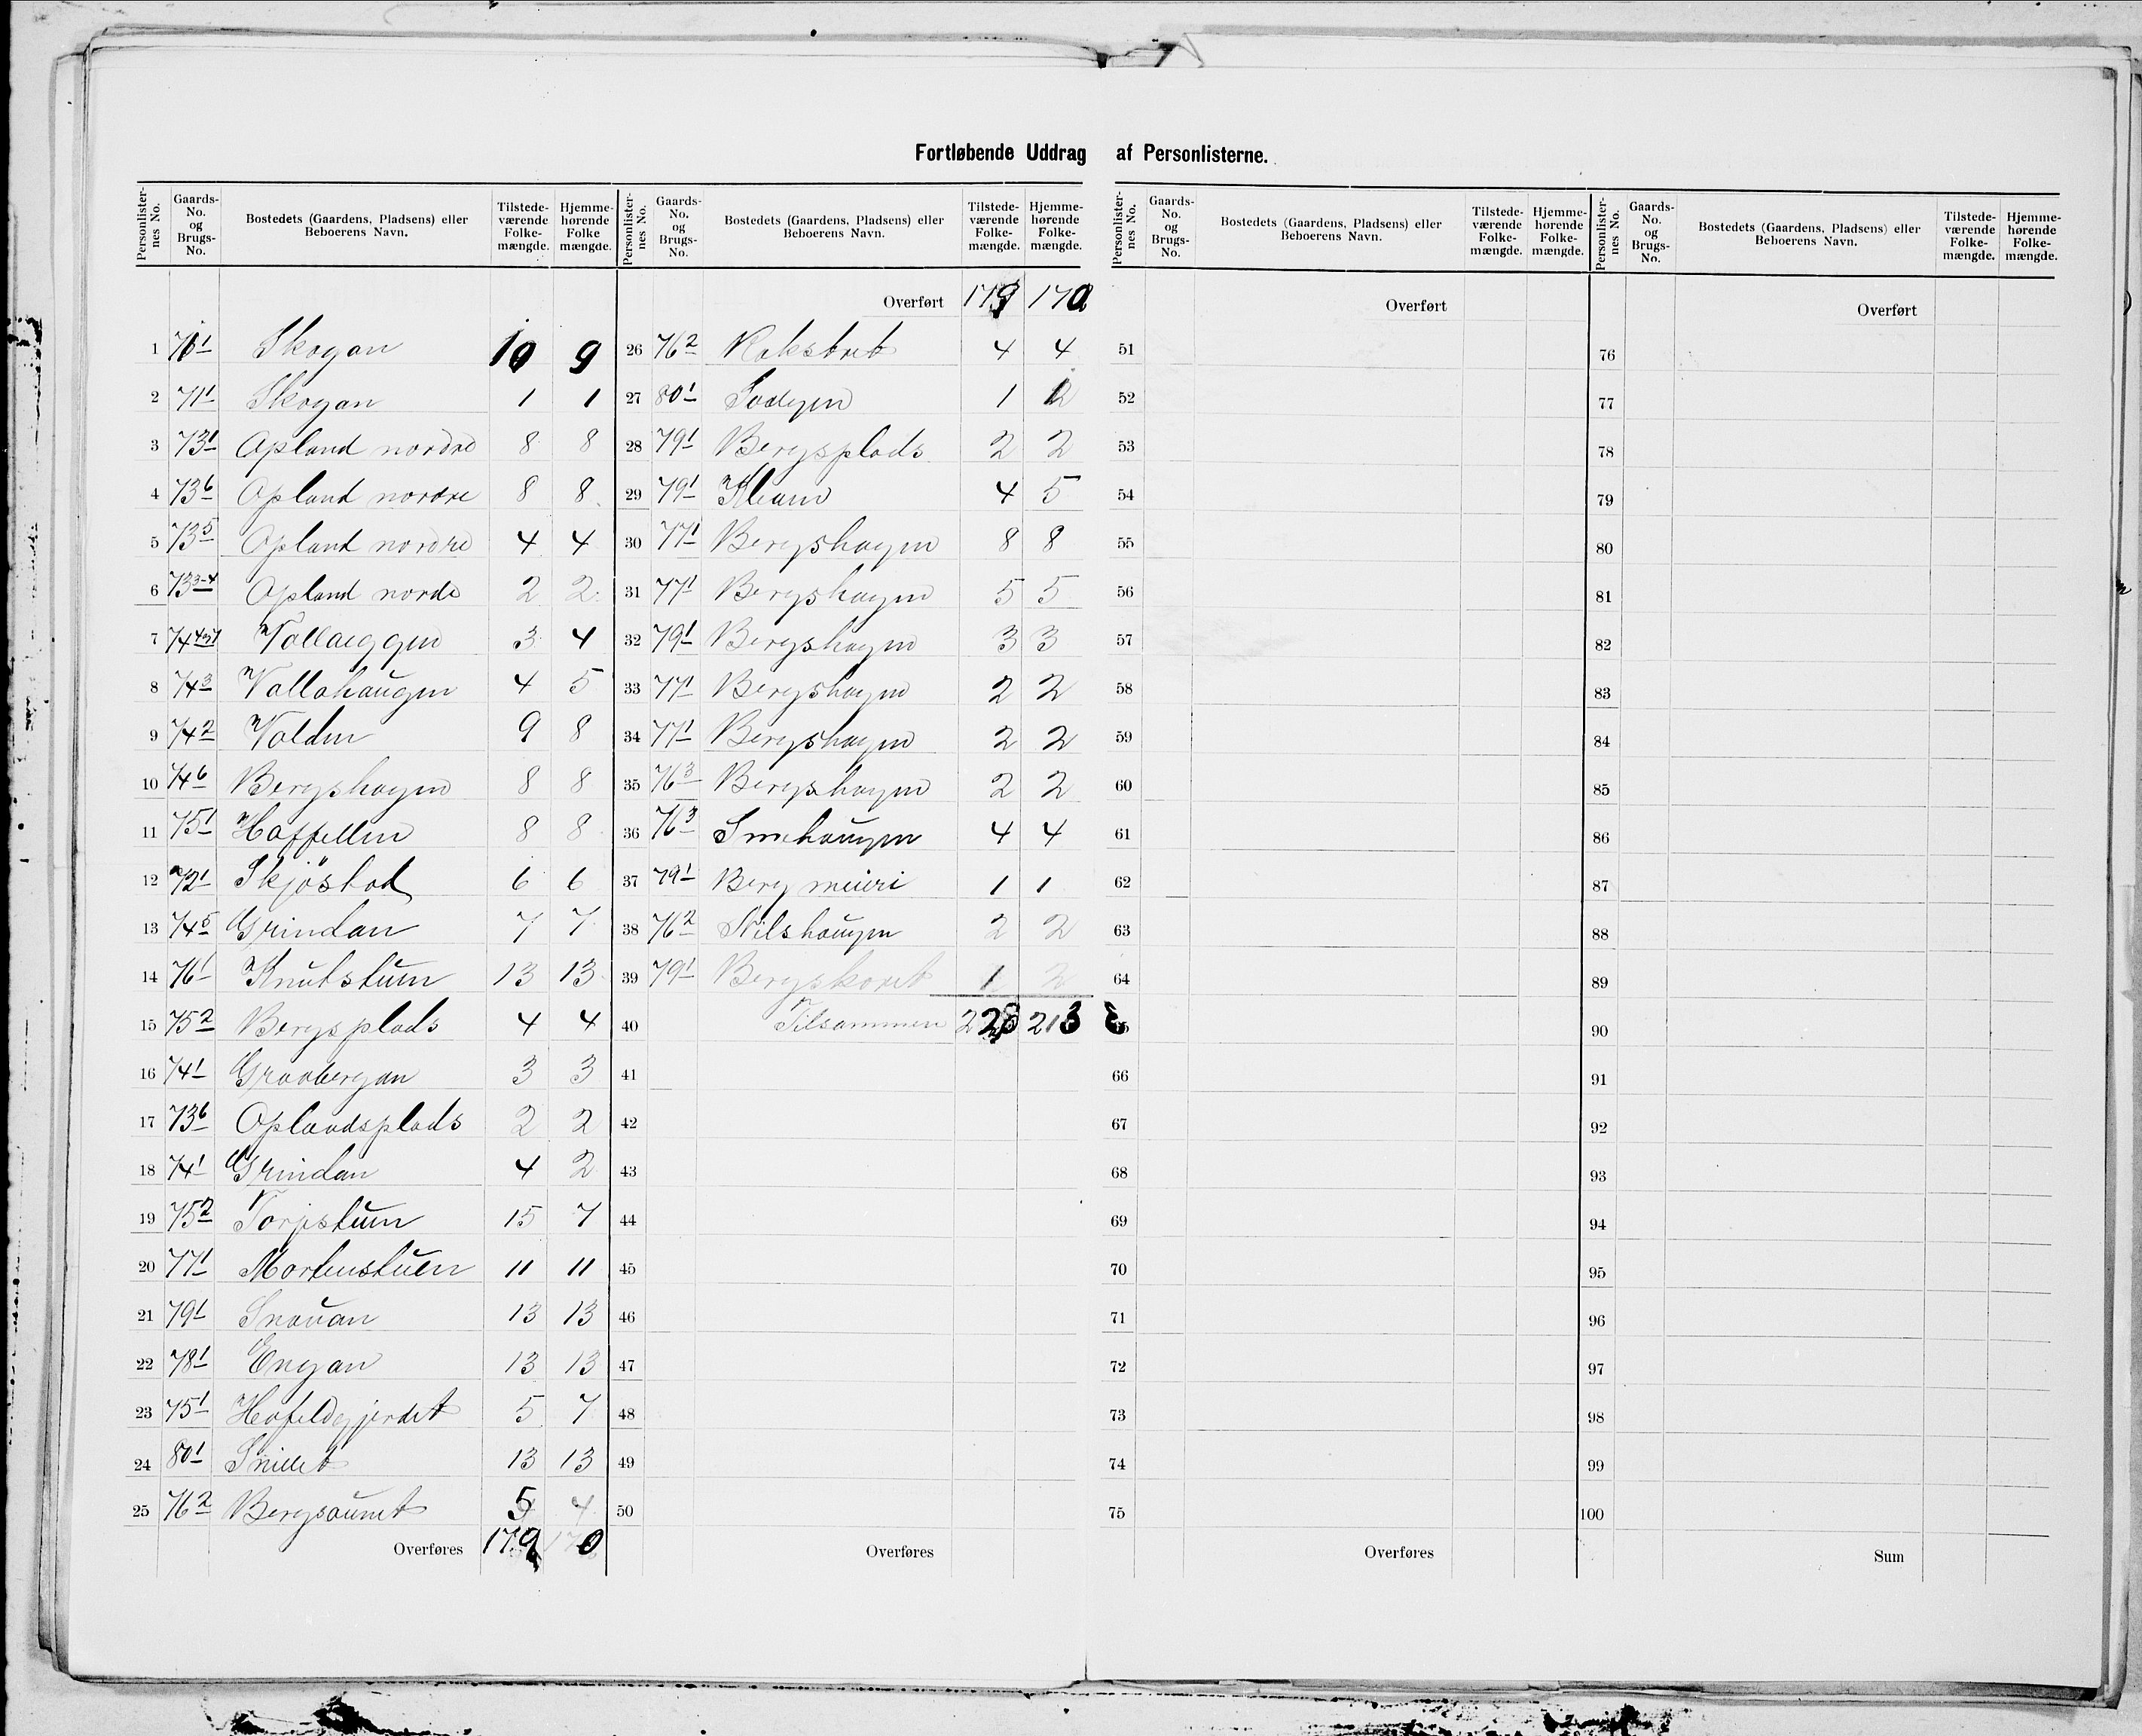 Fortløbende Uddrag af Personlisterne.
Personlister-nes No. Gaards-No. og Brugs-No. Bostedets (Gaardens, Pladsens) eller Beboerens Navn. Tilstede-værende Folke-mængde. Hjemme-hørende Folke mængde.
1 70 1 Skogan 10 9
2 71 1 Skogan 1 1
3 73 1 Opland nordre 8 8
4 73 6 Opland nordre 8 8
5 73 5 Opland nordre 4 4
6 73 3-4 Opland norde 2 2
7 74 Vollaeggen 3 4
8 74 3 Vollahaugen 4 5
9 74 2 Volden 9 8
10 74 6 Bergshagen 8 8
11 75 1 Haffellen 8 8
12 72 1 Skjöstad 6 6
13 74 5 Grindan 7 7
14 76 1 Knutstuen 13 13
15 75 2 Bergsplads 4 4
16 74 1 Graabergan 3 3
17 73 6 Oplandsplads 2 2
18 74 1 Grindan 4 2
19 75 2 Torjstuen 15 7
20 77 1 Mortenstuen 11 11
21 79 1 Snauan 13 13
22 78 1 Engan 13 13
23 75 1 Hafeldgjerdet 5 7
24 80 1 Snillet 13 13
25 76 2 Bergsaunet 5 4
Overføres 179 170
Personlister-nes No. Gaards-No. og Brugs-No. Bostedets (Gaardens, Pladsens) eller Beboerens Navn. Tilstede-værende Folke-mængde. Hjemme-hørende Folke-mængde.
Overført 179 170
26 76 2 Rokstret 4 4
27 80 1 1
28 79 1 Bergsplads 2 2
29 79 1 Kleam 4 5
30 77 1 Bergshagen 8 8
31 77 1 Bergshagen 5 5
32 79 1 Bergshagen 3 3
33 77 1 Bergshagen 2 2
34 77 1 Bergshagen 2 2
35 76 3 Bergshagen 2 2
36 76 3 Smehaugen 4 4
37 79 1 Berg meieri 1 1
38 76 2 Nilshaugen 2 2
39 79 1 Bergskoret 1 2
40 Tilsammen 213
41
42
43
44
45
46
47
48
49
50
Overføres
Personlister-nes No. Gaards-No. og Brugs-No. Bostedets (Gaardens, Pladsens) eller Beboerens Navn. Tilstede-værende Folke-mængde. Hjemme-hørende Folke-mængde.
Overført
51
52
53
54
55
56
57
58
59
60
61
62
63
64
66
67
68
69
70
71
72
73
74
75
Overføres
Personlister-nes No. Gaards-No. og Brugs-No. Bostedets (Gaardens, Pladsens) eller Beboerens Navn. Tilstede-værende Folke-mængde. Hjemme-hørende Folke-mængde.
Overført
76
77
78
79
80
81
82
83
84
85
86
87
88
89
90
91
92
93
94
95
96
97
98
99
100
Sum